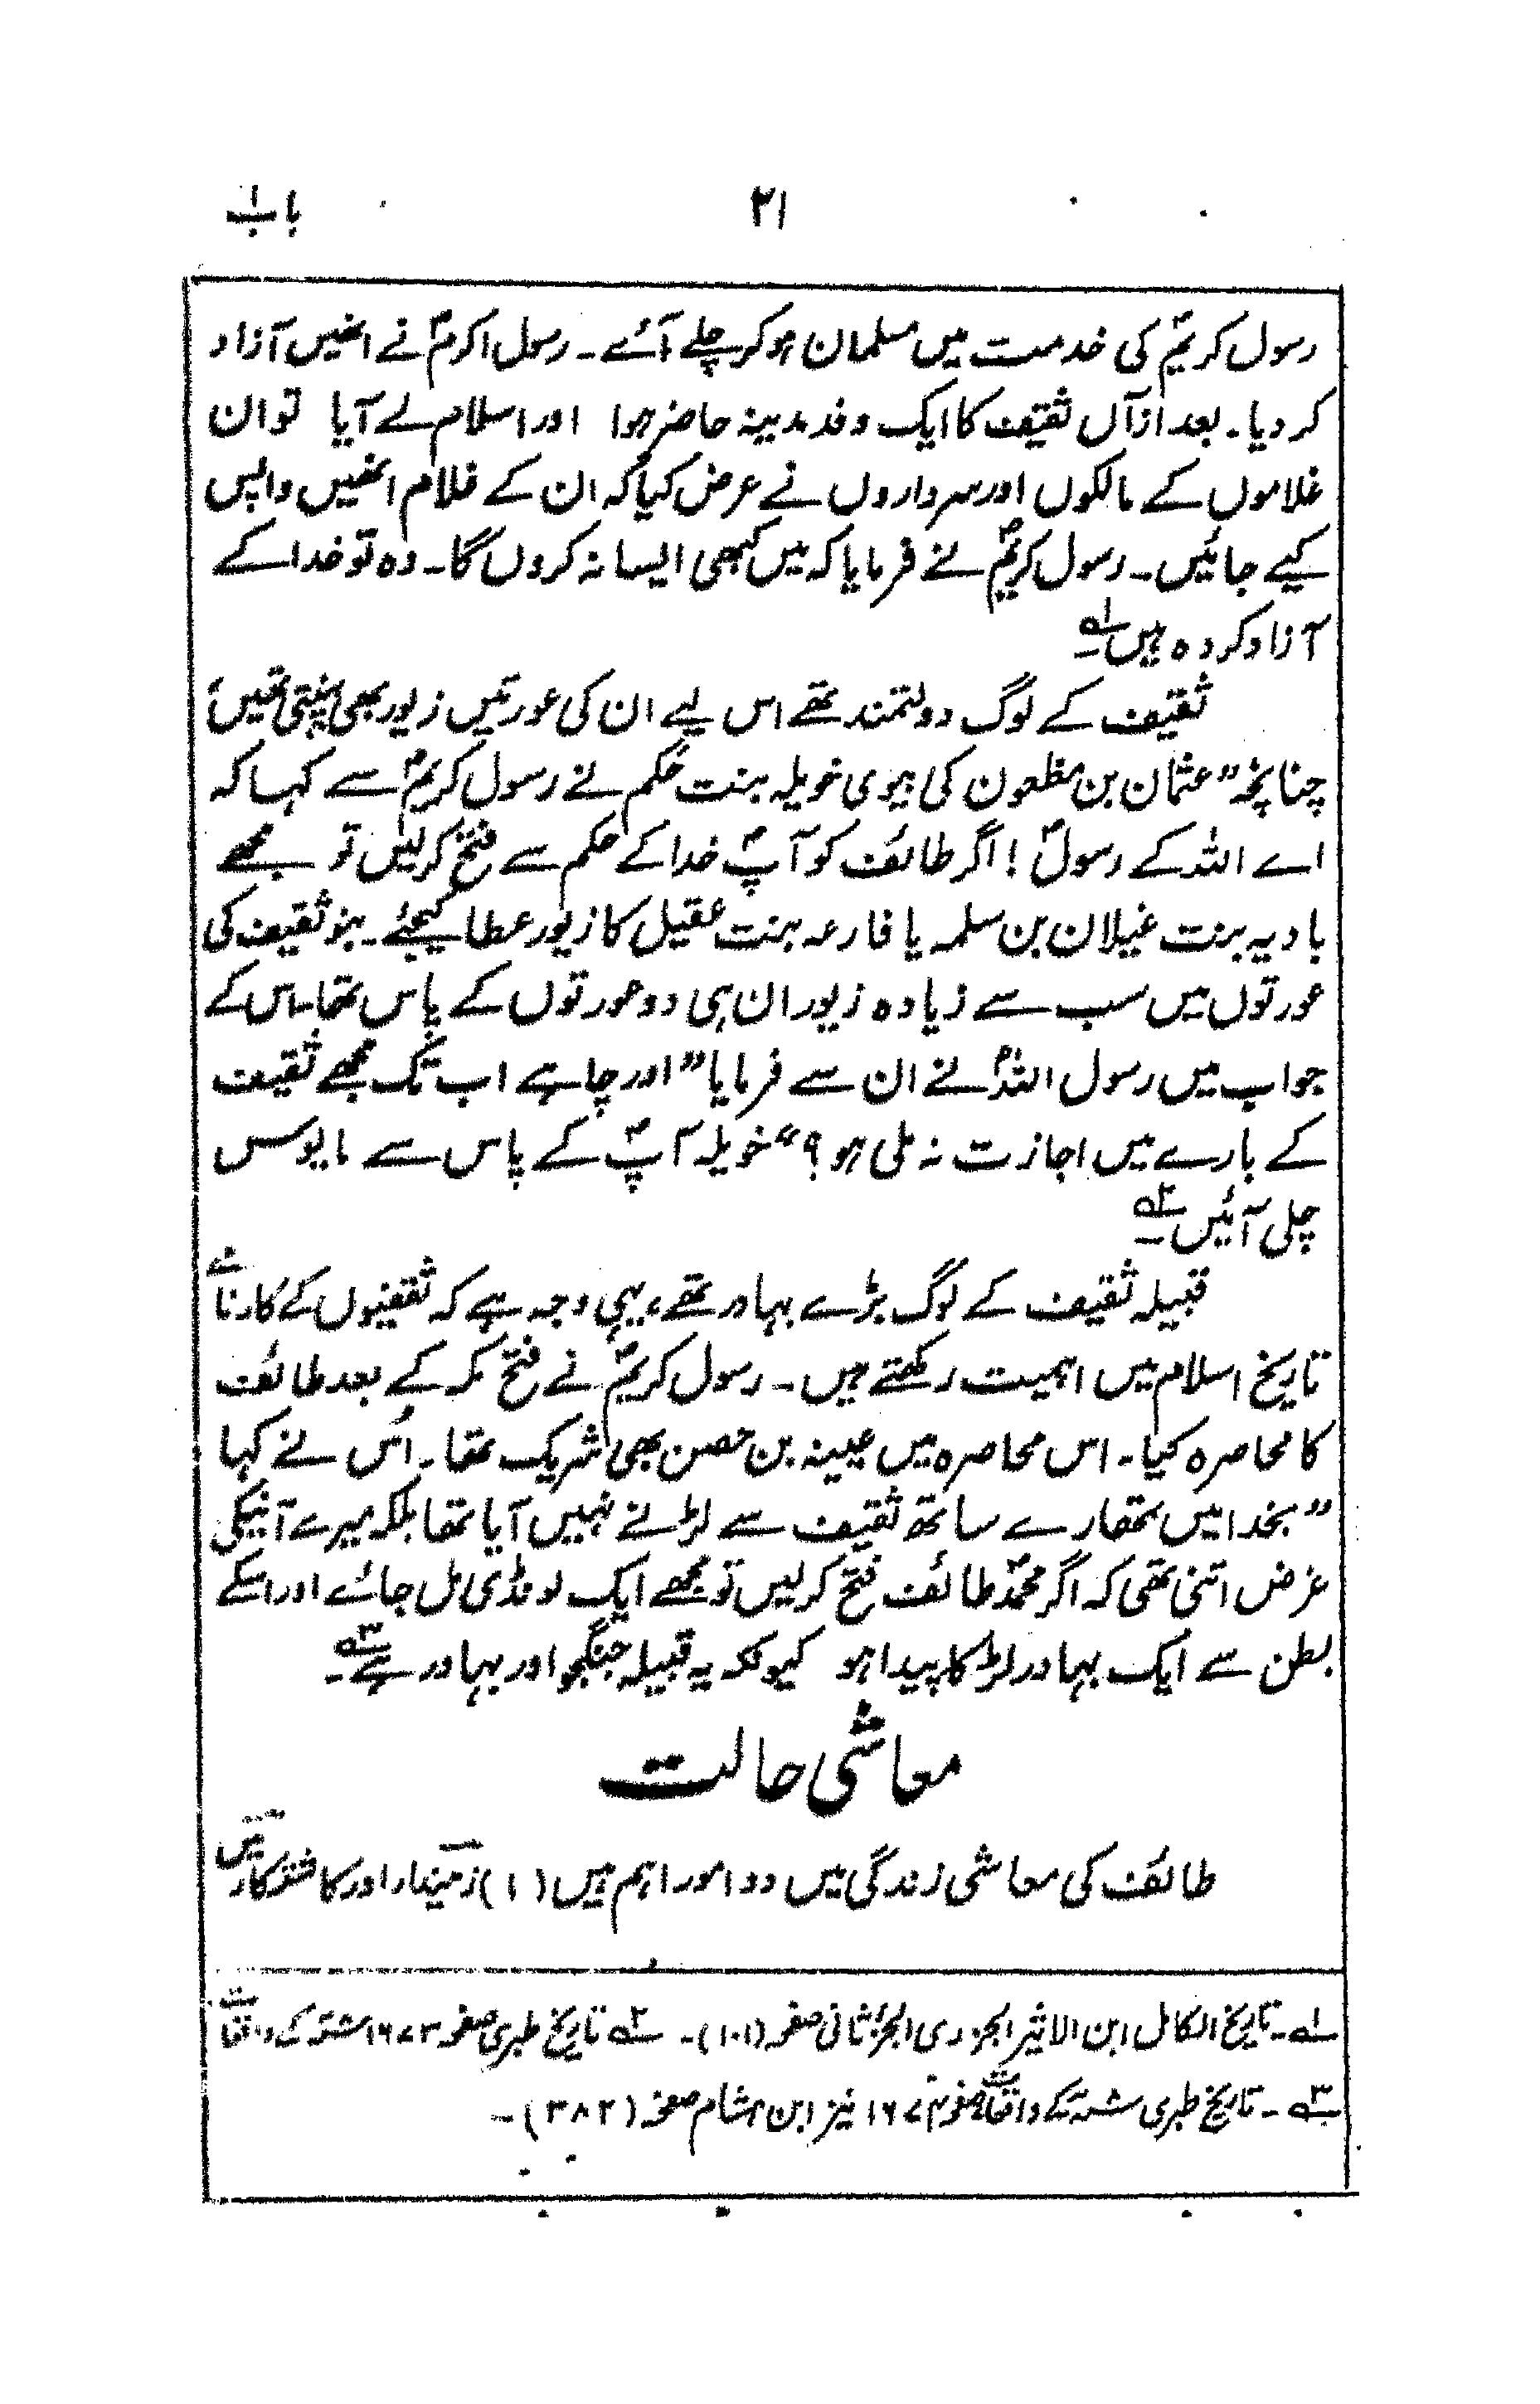 باب ۱
۲۱
رسول کریمؐ کی خدمت میں مسلمان ہوکر چلے آئے۔ رسول اکرمؐ نے انھیں آزاد
کر دیا۔ بعد ازآں ثقیف کا ایک وفد مدینہ حاضر ہوا اور اسلام لے آیا تو ان
غلاموں کے مالکوں اور سرداروں نے عرض کیا کہ ان کے غلام انھیں واپس
کیے جائیں۔ رسول کریمؐ نے فرمایا کہ میں کبھی ایسا نہ کروں گا۔ وہ تو خدا کے
آزاد کردہ ہیں ۱؎۔
ثقیف کے لوگ دولتمند تھے اس لیے ان کی عورتیں زیور بھی پہنتی تھیں،
چنانچہ ”عثمان بن مظعون کی بیوی خویلہ بنت حکم نے رسول کریمؐ سے کہا کہ
اے اللہ کے رسولؐ! اگر طائف کو آپؐ خدا کے حکم سے فتح کرلیں تو مجھے
بادیہ بنت غیلان بن سلمہ یا فارعہ بنت عقیل کا زیور عطا کیجئے۔ بنو ثقیف کی
عورتوں میں سب سے زیادہ زیور ان ہی دو عورتوں کے پاس تھا۔ اس کے
جواب میں رسول اللہؐ نے ان سے فرمایا ”اور چاہے اب تک مجھے ثقیف
کے بارے میں اجازت نہ ملی ہو؟“ خویلہ آپؐ کے پاس سے مایوس
چلی آئیں ۲؎۔
قبیلہ ثقیف کے لوگ بڑے بہادر تھے، یہی وجہ ہے کہ ثقفیوں کے کارنامے
تاریخ اسلام میں اہمیت رکھتے ہیں۔ رسول کریمؐ نے فتح مکہ کے بعد طائف
کا محاصرہ کیا۔ اس محاصرہ میں عیینہ بن حصن بھی شریک تھا۔ اُس نے کہا
”بخدا میں تمھارے ساتھ ثقیف سے لڑنے نہیں آیا تھا بلکہ میرے آنیکی
غرض اتنی تھی کہ اگر محمدؐ طائف فتح کرلیں تو مجھے ایک لونڈی مل جائے اور اسکے
بطن سے ایک بہادر لڑکا پیدا ہو کیونکہ یہ قبیلہ جنگجو اور بہادر ہے ۳؎۔
معاشی حالت
طائف کی معاشی زندگی میں دو امور اہم ہیں (۱) زمیندار اور کاشتکار ہیں
۱؎۔ تاریخ الکامل ابن الاثیر الجزری الجزء ثانی صفحہ (۱۰۱)۔ ۲؎ تاریخ طبری صفحہ ۱۶۷۳ کے واقعات
۳؎۔ تاریخ طبری کے واقعات صفحہ ۱۶۷۴ نیز ابن ہشام صفحہ (۳۸۲)۔